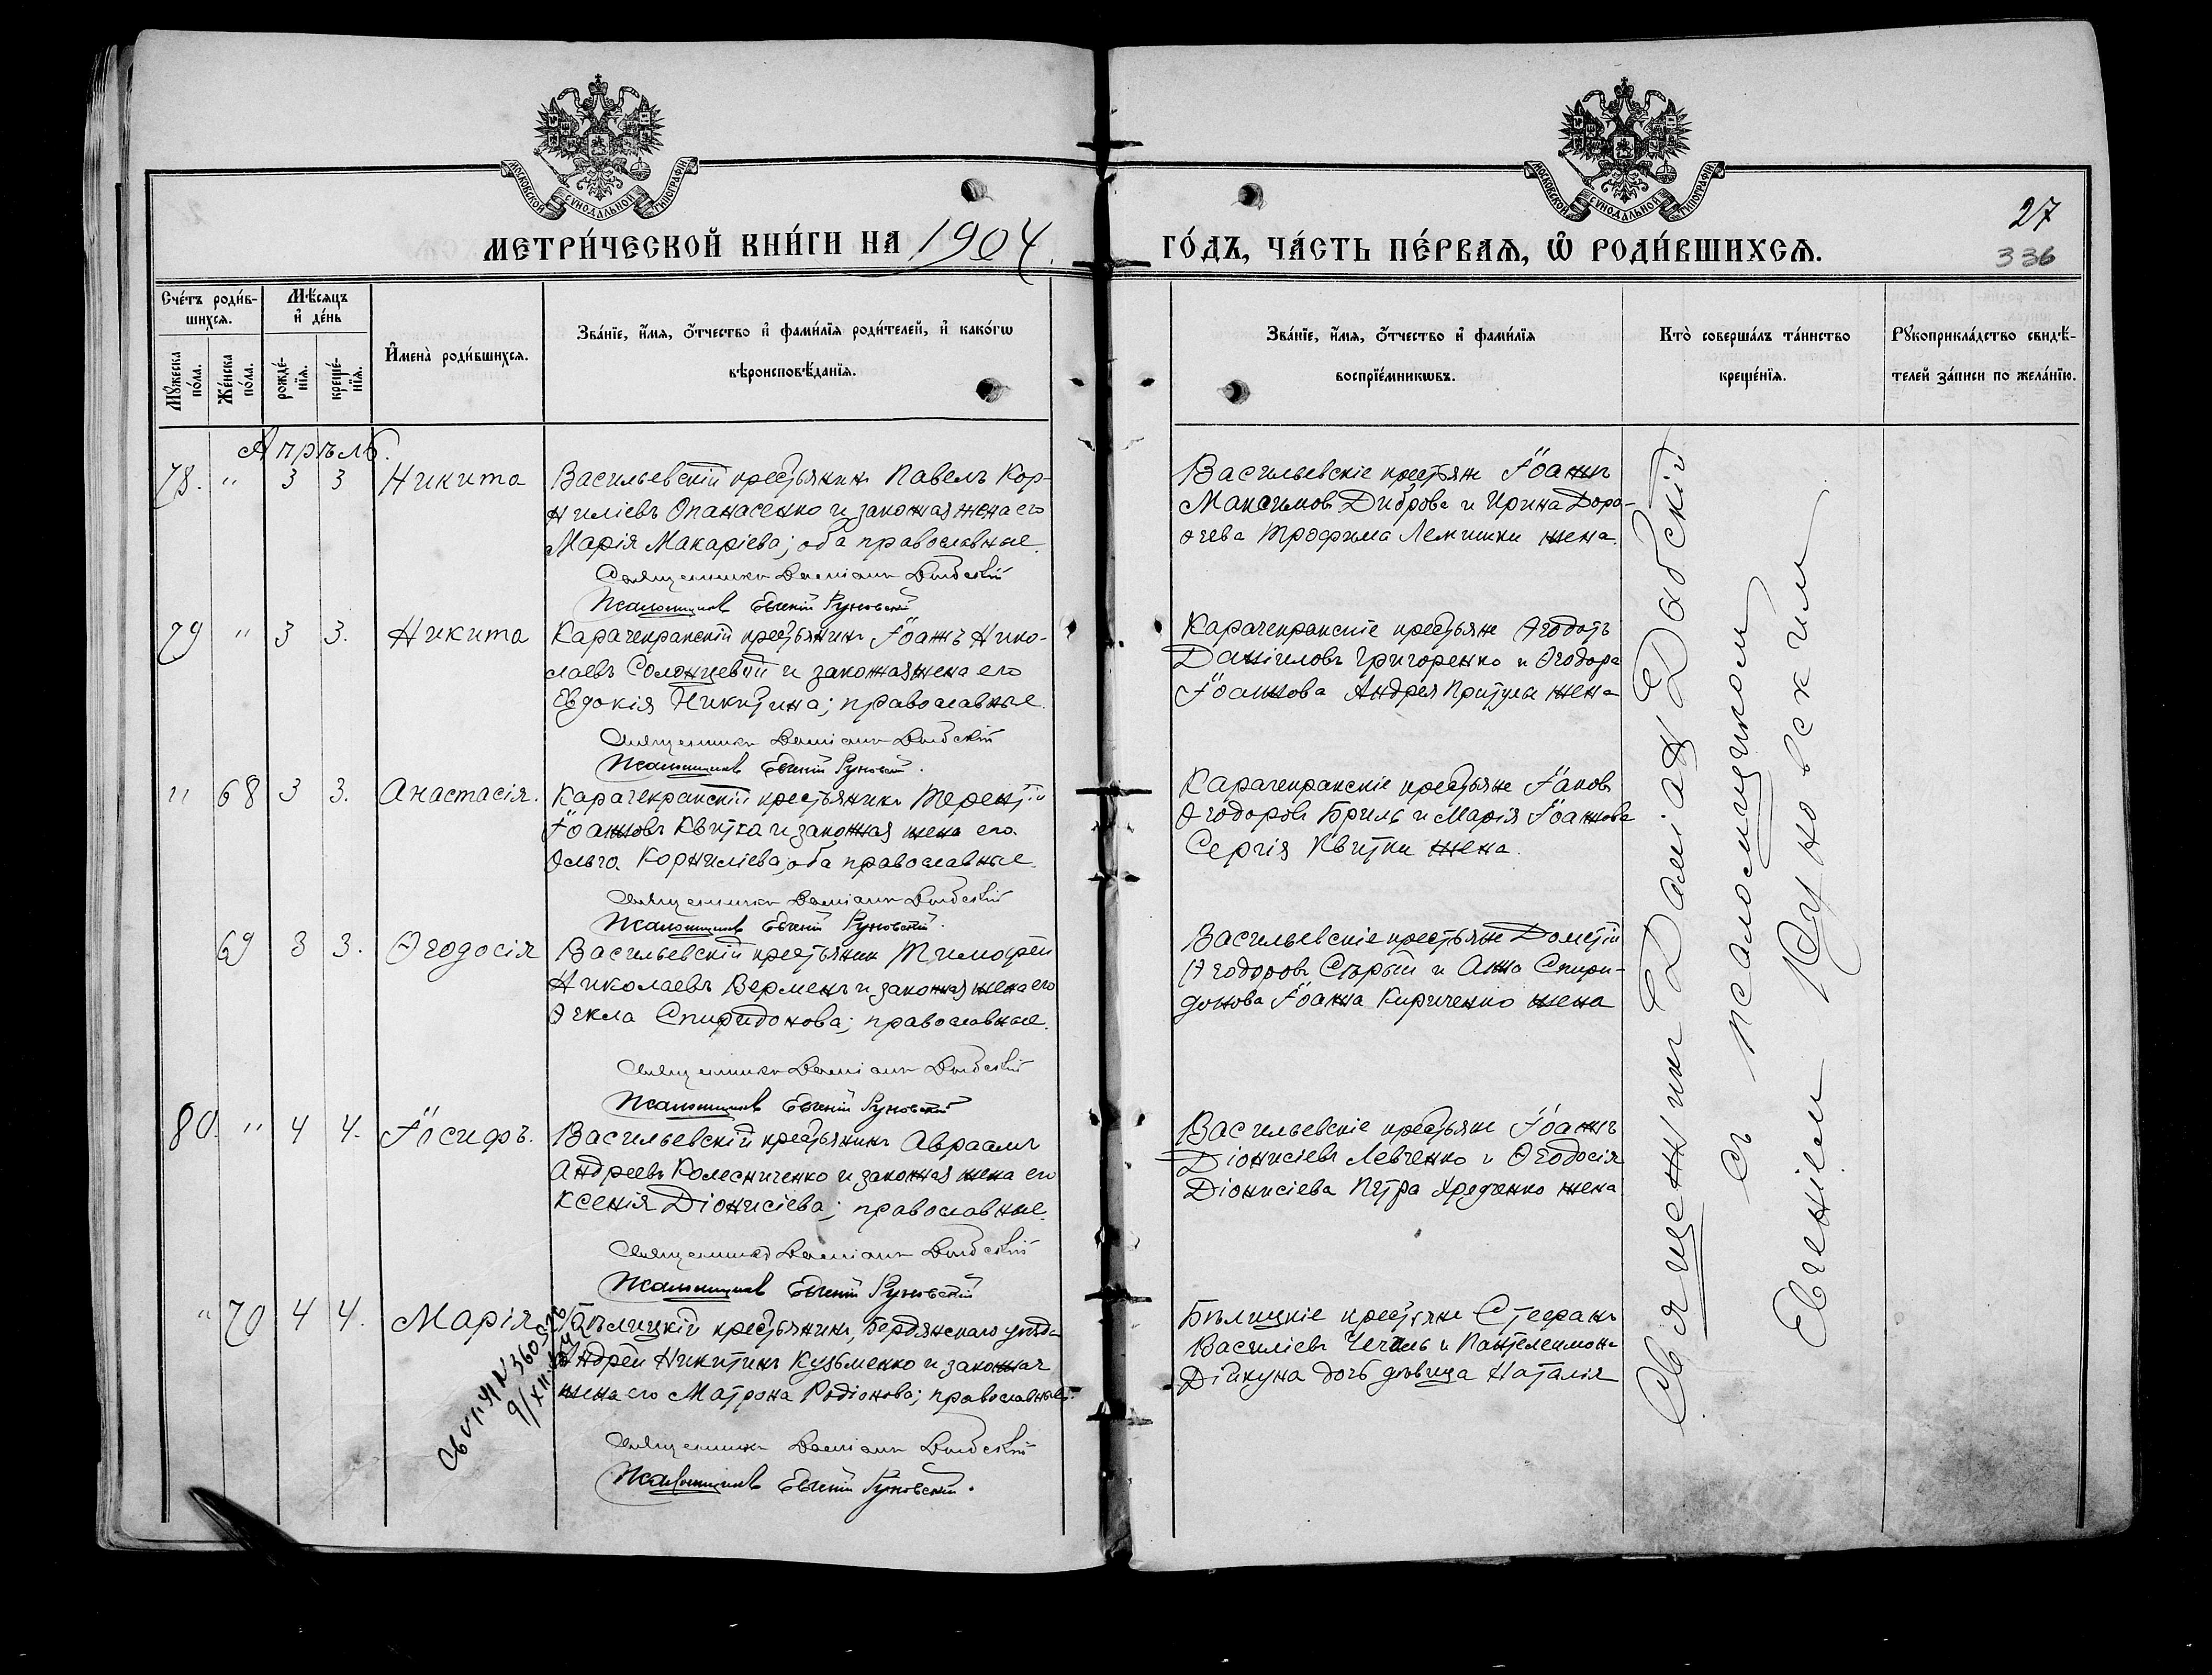 МОСКОВСКОЙ СѴНОДАЛЬНОЙ ТИПОГРАФІИ
МОСКОВСКОЙ СѴНОДАЛЬНОЙ ТИПОГРАФІИ
27
МЕТРИ́ЧЕСКОЙ КНИ́ГИ НА 1904.
ГО́ДЪ, ЧА́СТЬ ПЕ́РВАЯ, Ѿ РОДИ́ВШИХСЯ.
336
Сче́тъ роди́в-
шихся.
Мѣ́сяцъ
и҆ де́нь
Мꙋ́жеска
по́ла.
Же́нска
по́ла.
рожде́-
нїя.
креще́-
нїя.
И҆мена̀ роди́вшихся.
Зва́нїе, и҆́мя, ѻ҆́тчество и҆ фами́лїя роди́телей, и҆ како́гѡ
вѣроисповѣ́данїя.
Зва́нїе, и҆́мя, ѻ҆́тчество и҆ фами́лїя
воспрїе́мникѡвъ.
Кто̀ соверша́лъ та́инство
креще́нїя.
Рꙋкоприкла́дство свидѣ́-
телей за́писи по жела́нїю.
Апрѣль.
78. " 3 3 Никита
Васильевскій крестьянинъ Павелъ Кор-
ниліевъ Опанасенко и законная жена его
Марія Макаріева; оба православные.
Священникъ Даміанъ Дабскій
Псаломщикъ Евгеній Руновскій
Васильевскіе крестьяне Іоаннъ
Максимовъ Диброва и Ирина Доро-
ѳеева Трофима Лемишки жена.
79 " 3 3. Никита
Карачекракскій крестьянинъ Іоаннъ Нико-
лаевъ Солонцевой и законная жена его
Евдокія Никитина; православные.
Священникъ Даміанъ Дабскій
Псаломщикъ Евгеній Руновскій.
Карачекракскіе крестьяне Ѳеодотъ
Даніиловъ Григоренко и Ѳеодора
Іоаннова Андрея Притулы жена
" 68 3 3. Анастасія.
Карачекракскій крестьянинъ Терентій
Іоанновъ Квитка и законная жена его
Ольга Корниліева; оба православные.
Священникъ Даміанъ Дабскій
Псаломщикъ Евгеній Руновскій.
Карачекракскіе крестьяне Іаковъ
Ѳеодоровъ Бриль и Марія Іоаннова
Сергія Квитки жена.
69 3 3. Ѳеодосія
Васильевскій крестьянинъ Тимофей
Николаевъ Верменъ и законная жена его
Ѳекла Спиридонова; православные.
Священникъ Даміанъ Дабскій
Псаломщикъ Евгеній Руновскій
Васильевскіе крестьяне Дометій
Ѳеодоровъ Сѣрый и Анна Спири-
донова Іоанна Кириченко жена
80. " 4 4. Іосифъ.
Васильевскій крестьянинъ Авраамъ
Андреевъ Колесниченко и законная жена его
Ксенія Діонисіева; православные.
Священникъ Даміанъ Дабскій
Псаломщикъ Евгеній Руновскій
Васильевскіе крестьяне Іоаннъ
Діонисіевъ Левченко и Ѳеодосія
Діонисіева Петра жена
" 70 4 4. Марія
Бѣлицкій крестьянинъ, Бердянскаго уѣзда
Андрей Никитинъ Кузьменко и законная
жена его Матрона Родіонова; православные.
Священникъ Даміанъ Дабскій
Псаломщикъ Евгеній Руновскій.
Бѣлицкіе крестьяне Стефанъ
Василіевъ Чечиль и Пантелеимона
Дійкуна дочь дѣвица Наталія
Священникъ Даміанъ Дабскій
съ псаломщикомъ
Евгеніемъ Руновскимъ